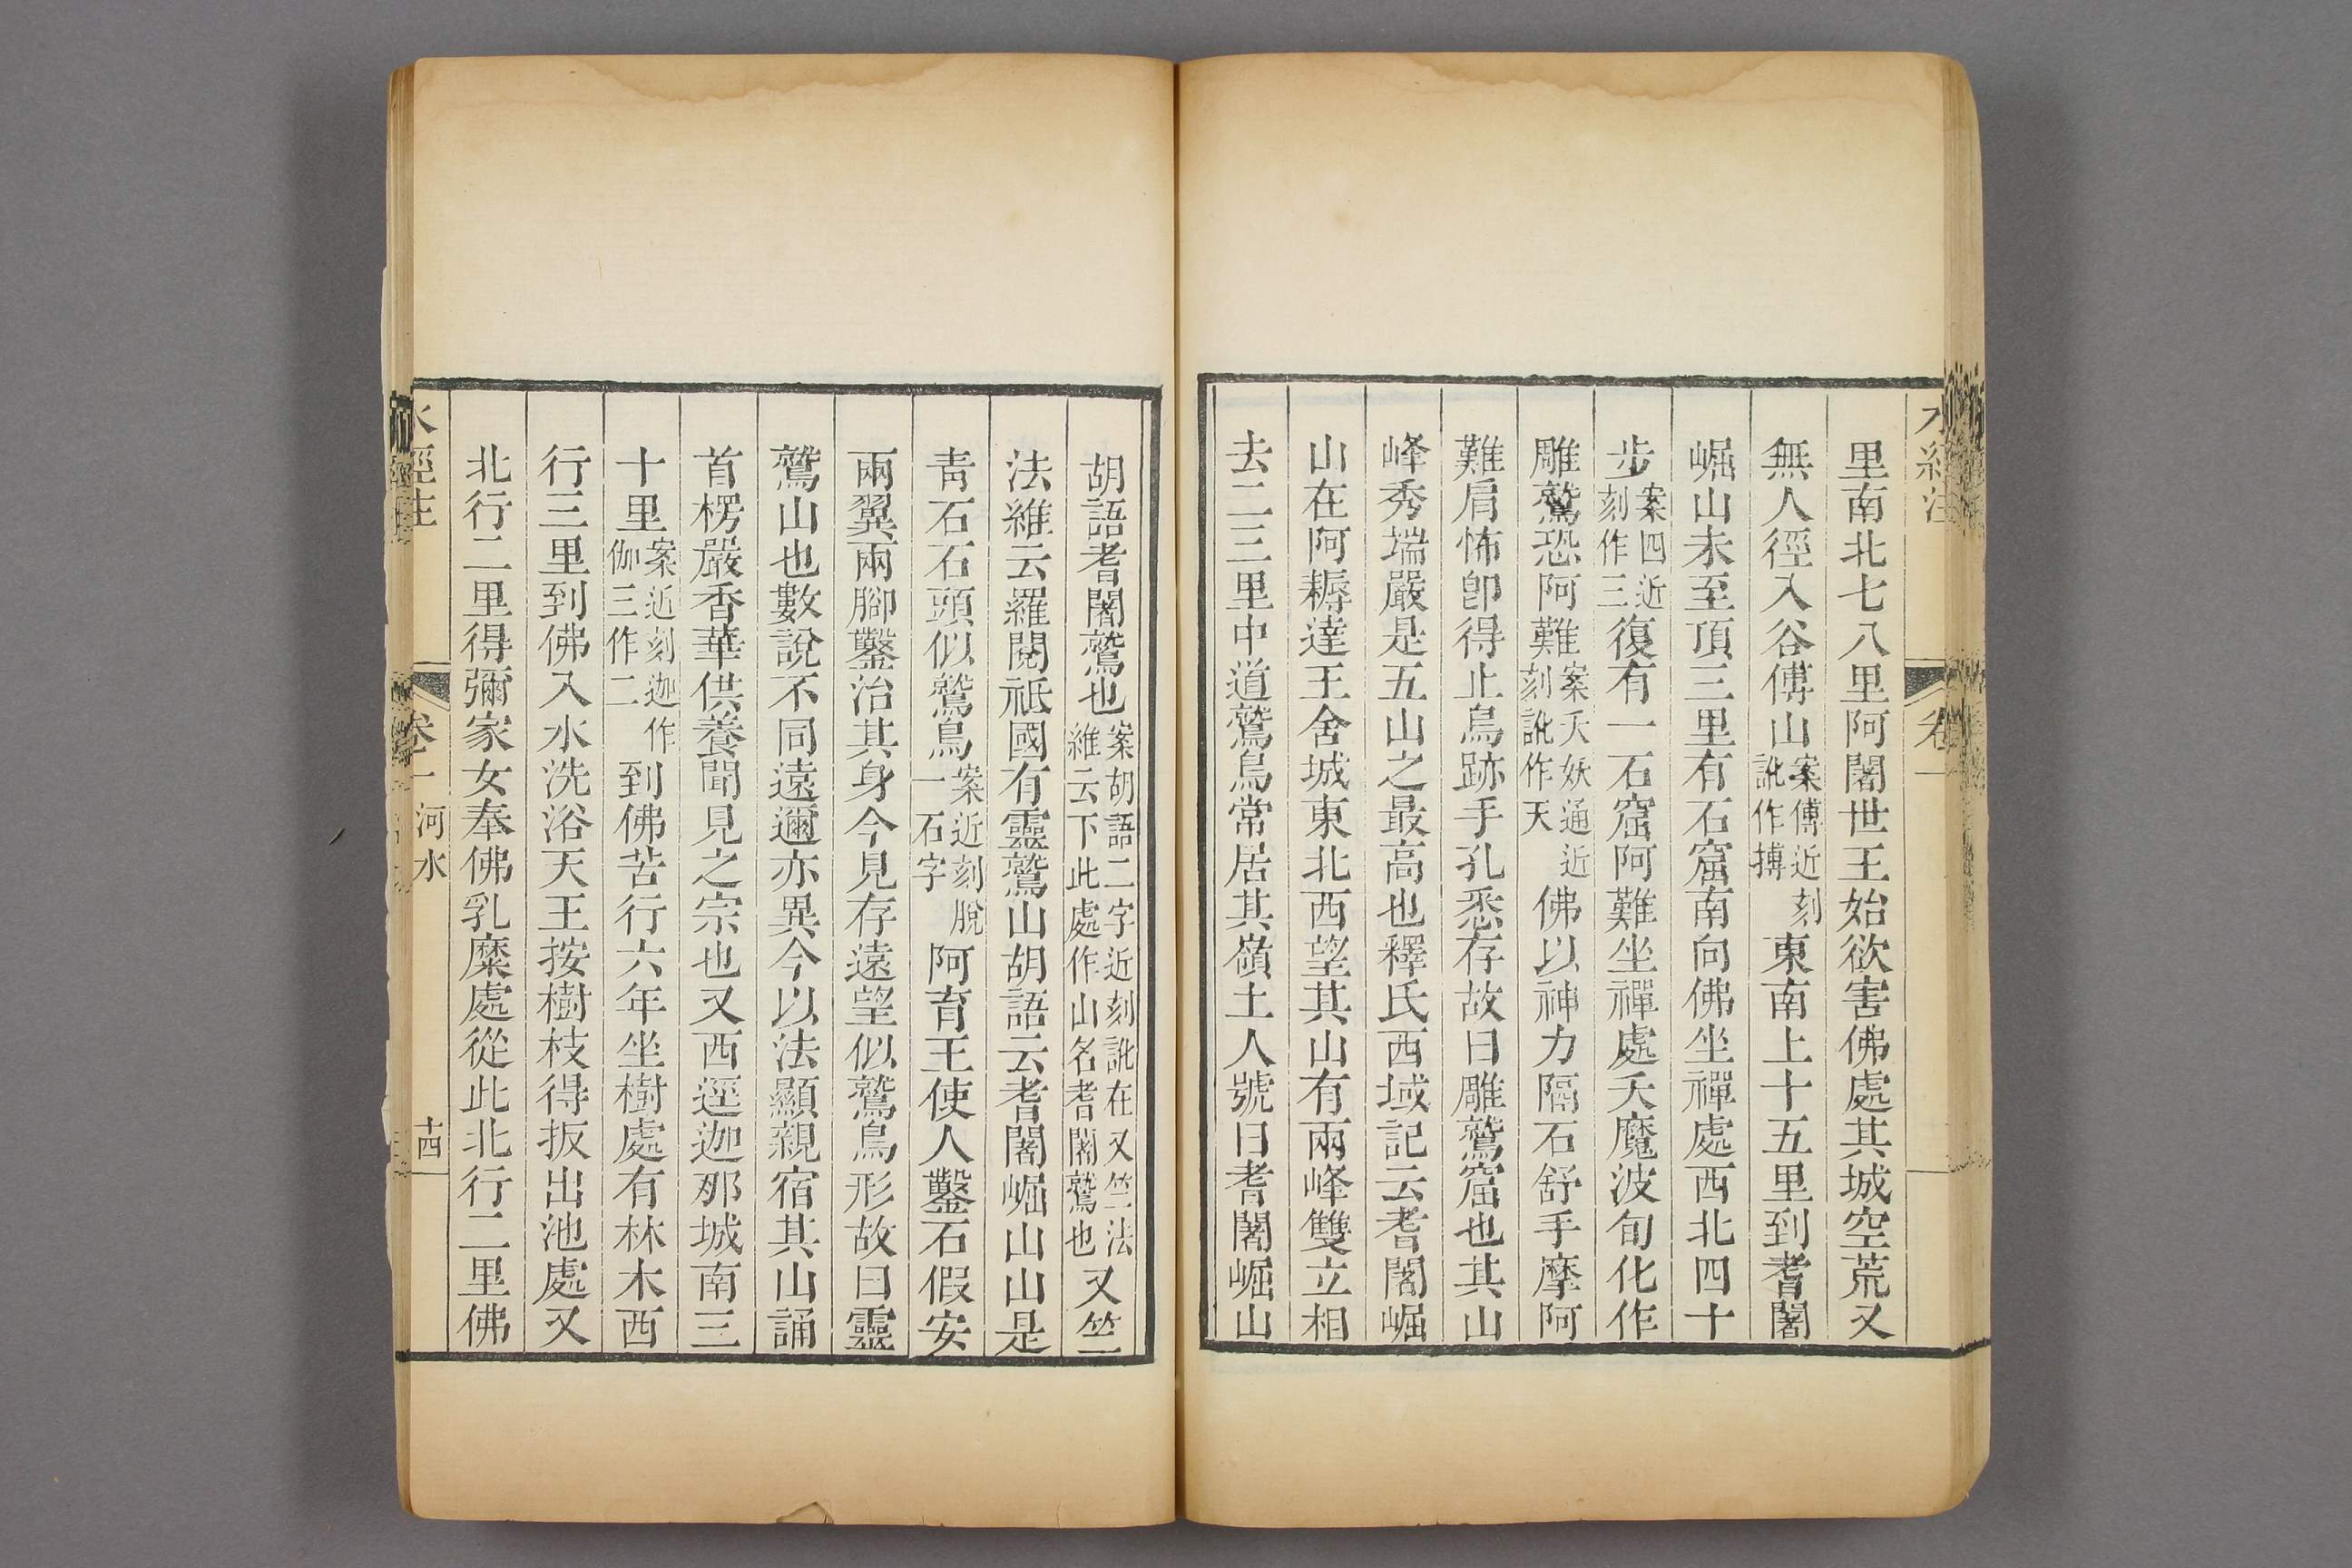 水經注 卷一
里南北七八里阿闍世王始欲害佛處其城空荒又
無人徑入谷傅山案傅近刻訛作搏東南上十五里到耆闍
崛山未至頂三里有石窟南向佛坐禪處西北四十
步案四近刻作三復有一石窟阿難坐禪處天魔波旬化作
雕鷲恐阿難案天妖通近刻訛作天佛以神力隔石舒手摩阿
難肩怖卽得止鳥跡手孔悉存故曰雕鷲窟也其山
峰秀端嚴是五山之最高也釋氏西域記云耆闍崛
山在阿耨達王舍城東北西望其山有兩峰雙立相
去二三里中道鷲鳥常居其嶺土人號曰耆闍崛山
胡語耆闍鷲也案胡語二字近刻訛在又竺法維云下此處作山名耆闍鷲也又竺
法維云羅閱祇國有靈鷲山胡語云耆闍崛山山是
靑石石頭似鷲鳥案近刻脫一石字阿育王使人鑿石假安
兩翼兩腳鑿治其身今見存遠望似鷲鳥形故曰靈
鷲山也數說不同遠邇亦異今以法顯親宿其山誦
首楞嚴香華供養聞見之宗也又西逕迦那城南三
十里案近刻迦作伽三作二到佛苦行六年坐樹處有林木西
行三里到佛入水洗浴天王按樹枝得扳出池處又
北行二里得彌家女奉佛乳糜處從此北行二里佛
水經注 卷一 河水 十四